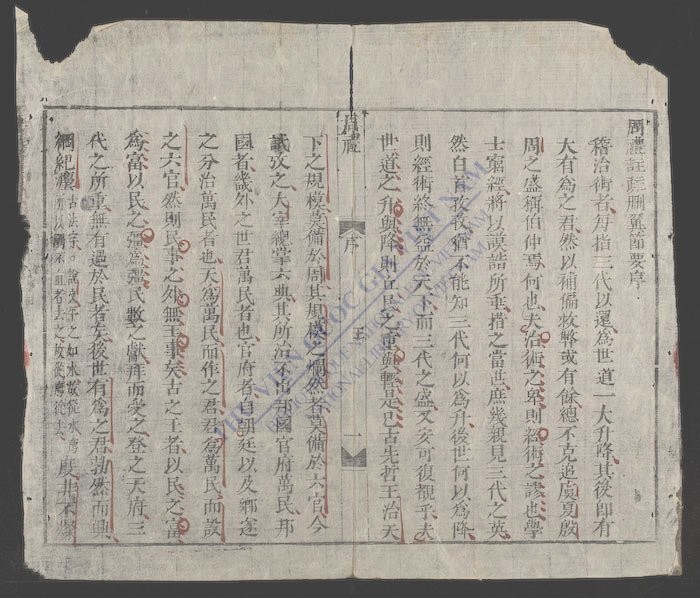 周禮註疏刪翼節要序
稽治術者每指三代以還為世道一大升降其後卽有
大有為之君然以補偏救弊或有餘總不克追虞夏殷
周之盛稱伯仲焉何也夫治術之卑則經術之謬也學
士窮經將以謨誥所垂措之當世庶幾親見三代之英
然白首孜孜猶不能知三代何以為升後世何以為降
則經術終無益於天下而三代之盛又安可復觀乎夫
世道之升與降則丘民之重與輕是已古先哲王治天
周禮
序
一
下之規模莫備於周其規模之爛然者莫備於六官今
試攷之大宰總掌六典其所治不出邦國官府萬民邦
國者畿外之世君萬民者也官府者自朝廷以及鄉遂
之分治萬民者也天為萬民而作之君君為萬民而設
之六官然則民事之外無王事矣古之王者以民之富
為富以民之彊為彊民數之獻拜而受之登之天府三
代之所重無有過於民者矣後世有為之君勃然而興
綱紀 度非不粲
THƯ VIỆN QUỐC GIA VIỆT NAM
BIBLIOTHEQUE NATIONALE DU VIETNAM
NATIONAL LIBRARY OF VIETNAM